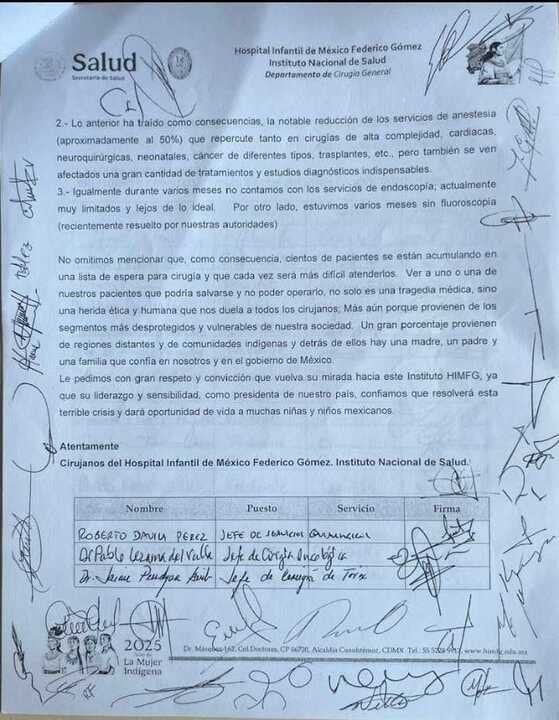 Salud
Secretaría de Salud
Hospital Infantil de México Federico Gómez
Instituto Nacional de Salud
Departamento de Cirugía General
2.- Lo anterior ha traído como consecuencias, la notable reducción de los servicios de anestesia
(aproximadamente al 50%) que repercute tanto en cirugías de alta complejidad, cardiacas,
neuroquirúrgicas, neonatales, cáncer de diferentes tipos, trasplantes, etc., pero también se ven
afectados una gran cantidad de tratamientos y estudios diagnósticos indispensables.
3.- Igualmente durante varios meses no contamos con los servicios de endoscopía; actualmente
muy limitados y lejos de lo ideal. Por otro lado, estuvimos varios meses sin fluoroscopia
(recientemente resuelto por nuestras autoridades)
No omitimos mencionar que, como consecuencia, cientos de pacientes se están acumulando en
una lista de espera para cirugía y que cada vez será más difícil atenderlos. Ver a uno o una de
nuestros pacientes que podría salvarse y no poder operarlo, no solo es una tragedia médica, sino
una herida ética y humana que nos duela a todos los cirujanos; Más aún porque provienen de los
segmentos más desprotegidos y vulnerables de nuestra sociedad. Un gran porcentaje provienen
de regiones distantes y de comunidades indígenas y detrás de ellos hay una madre, un padre y
una familia que confía en nosotros y en el gobierno de México.
Le pedimos con gran respeto y convicción que vuelva su mirada hacia este Instituto HIMFG, ya
que su liderazgo y sensibilidad, como presidenta de nuestro país, confiamos que resolverá esta
terrible crisis y dará oportunidad de vida a muchas niñas y niños mexicanos.
Atentamente
Cirujanos del Hospital Infantil de México Federico Gómez. Instituto Nacional de Salud.
Nombre Puesto Servicio Firma
ROBERTO DAVILA PEREZ JEFE DE SERVICIOS
Dr Pablo Lezama del Valle Jefe de Cirugía Oncológica
Dr. Jaime Penchyna Jefe de Cirugía de Tórax
2025
Año de
La Mujer
Indígena
Dr. Márquez 162, Col Doctores, CP 06720, Alcaldía Cuauhtémoc, CDMX Tel. 55 5228 9917 www.himfg.edu.mx